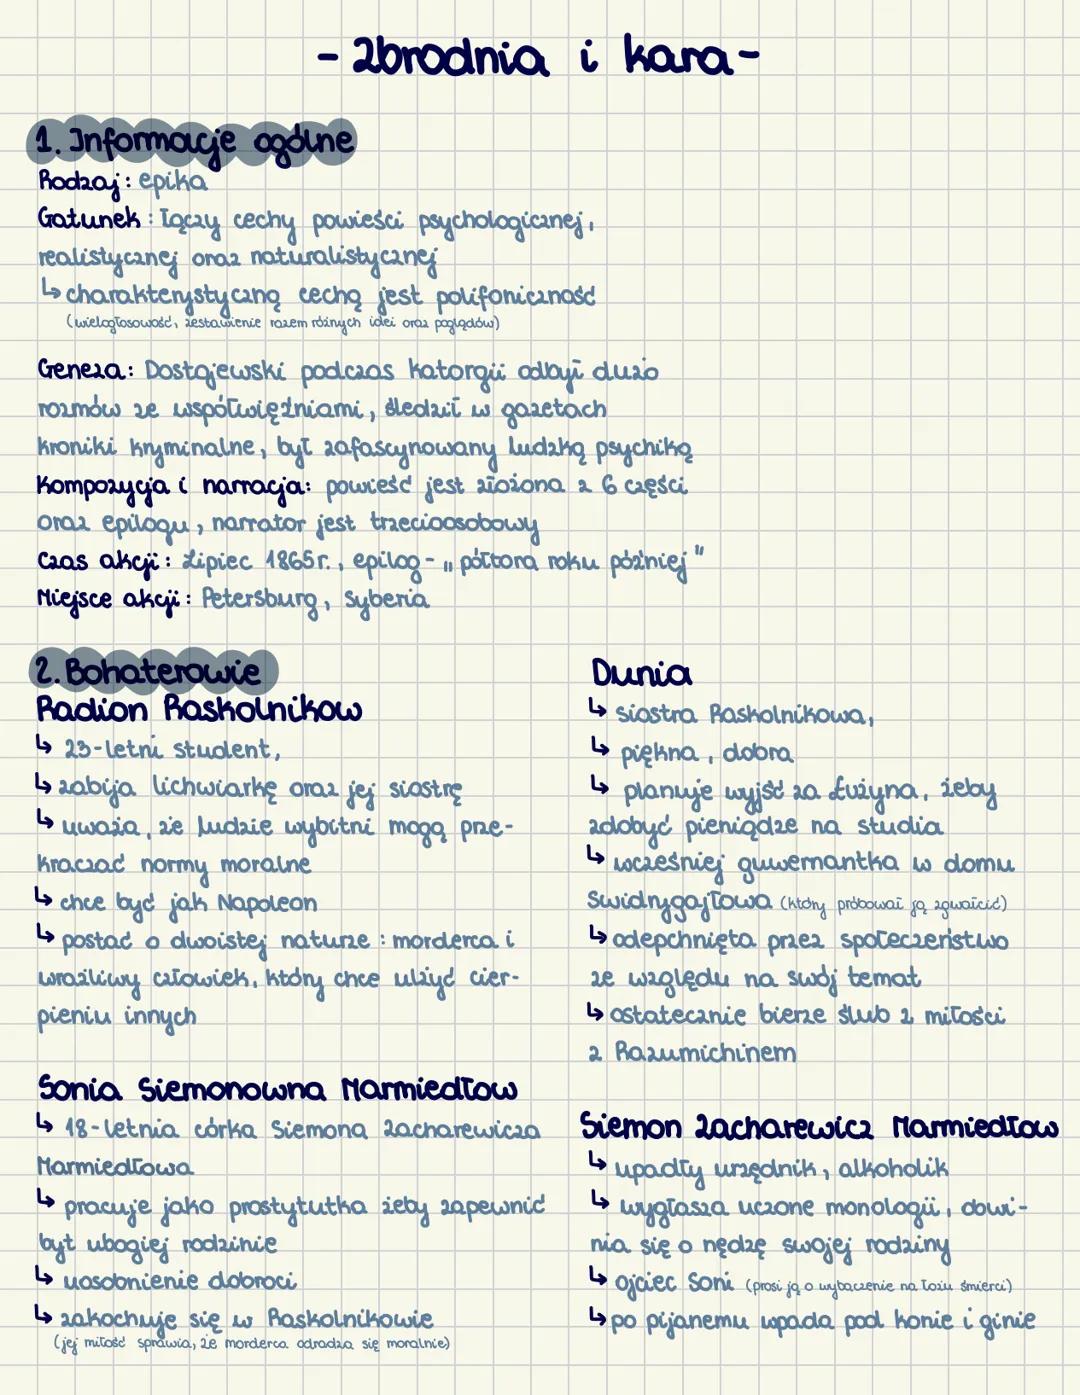 - Zbrodnia i kara -
1. Informacje ogólne
Rodzaj: epika
Gatunek: łączy cechy powieści psychologicznej,
realistycznej oraz naturalistycznej
↳ charakterystyczną cechą jest polifoniczność
(wielogłosowość, zestawienie razem różnych idei oraz poglądów)
Geneza: Dostojewski podczas katorgii odbył dużo
rozmów ze współwięźniami, śledził w gazetach
kroniki kryminalne, był zafascynowany ludzką psychiką
Kompozycja i narracja: powieść jest złożona z 6 części
oraz epilogu, narrator jest trzecioosobowy
Czas akcji: Lipiec 1865r., epilog - „półtora roku później"
Miejsce akcji: Petersburg, Syberia
2. Bohaterowie
Radion Raskolnikow
↳ 23-letni student,
↳ zabija lichwiarkę oraz jej siostrę
↳ uważa, że ludzie wybitni mogą prze-
kraczać normy moralne
↳ chce być jak Napoleon
↳ postać o dwoistej naturze: morderca i
wrażliwy człowiek, który chce ulżyć cier-
pieniu innych
Sonia Siemonowna Marmiedłow
↳ 18-letnia córka Siemona Zacharewicza
Marmiedłowa
↳ pracuje jako prostytutka żeby zapewnić
byt ubogiej rodzinie
↳ uosobnienie dobroci
↳ zakochuje się w Raskolnikowie
(jej miłość sprawia, że morderca odradza się moralnie)
Dunia
↳ siostra Raskolnikowa,
↳ piękna, dobra
↳ planuje wyjść za Łużyna, żeby
zdobyć pieniądze na studia
↳ wcześniej guwernantka w domu
Swidrygajłowa (który próbował ją zgwałcić)
↳ odepchnięta przez społeczeństwo
ze względu na swój temat
↳ ostatecznie bierze ślub z miłości
z Razumichinem
Siemon Zacharewicz Marmiedłow
↳ upadły urzędnik, alkoholik
↳ wygłasza uczone monologii, obwi-
nia się o nędzę swojej rodziny
↳ ojciec Soni (prosi ją o wybaczenie na łożu śmierci)
↳ po pijanemu wpada pod konie i ginie